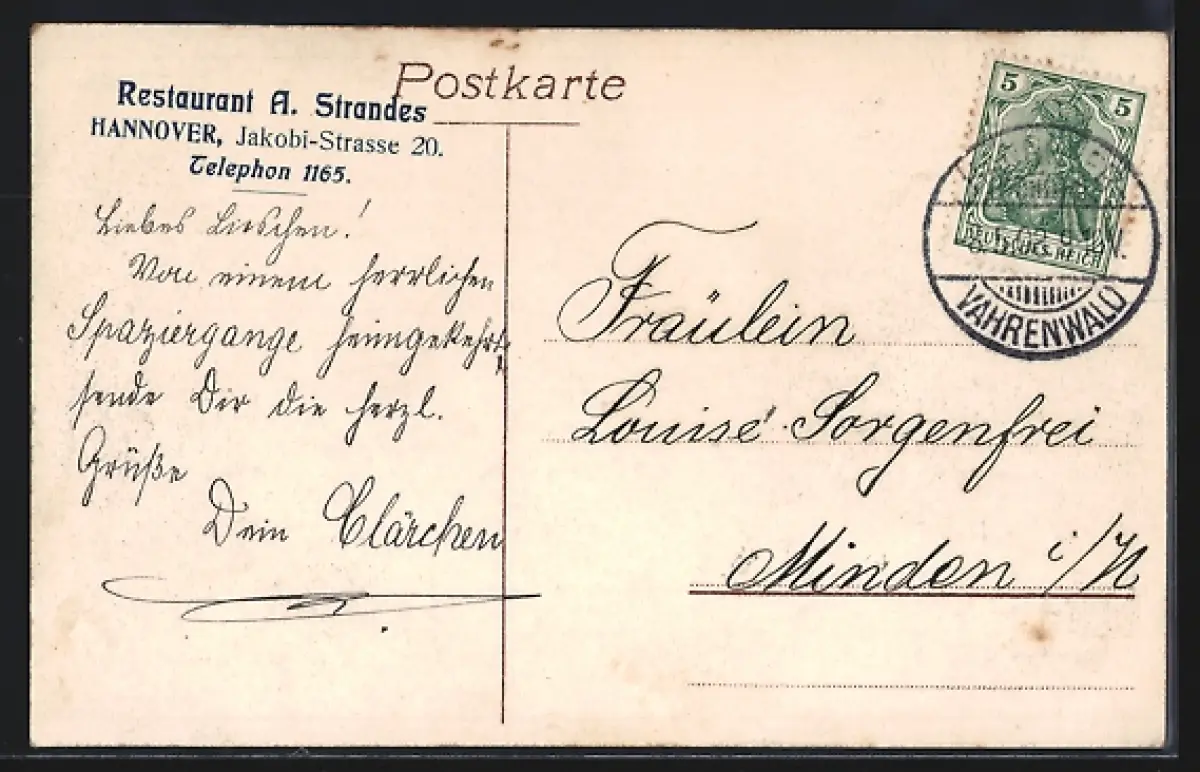 Postkarte
Restaurant A. Strandes
HANNOVER, Jakobi-Strasse 20.
Telephon 1165.
Liebes Lieschen!
Von einem herrlichen
Spaziergange heimgekehrt,
sende Dir die herzl.
Grüße
Dein Clärchen
5 5
DEUTSCHES REICH
VAHRENWALD
Fräulein
Louise Sorgenfrei
Minden i/W